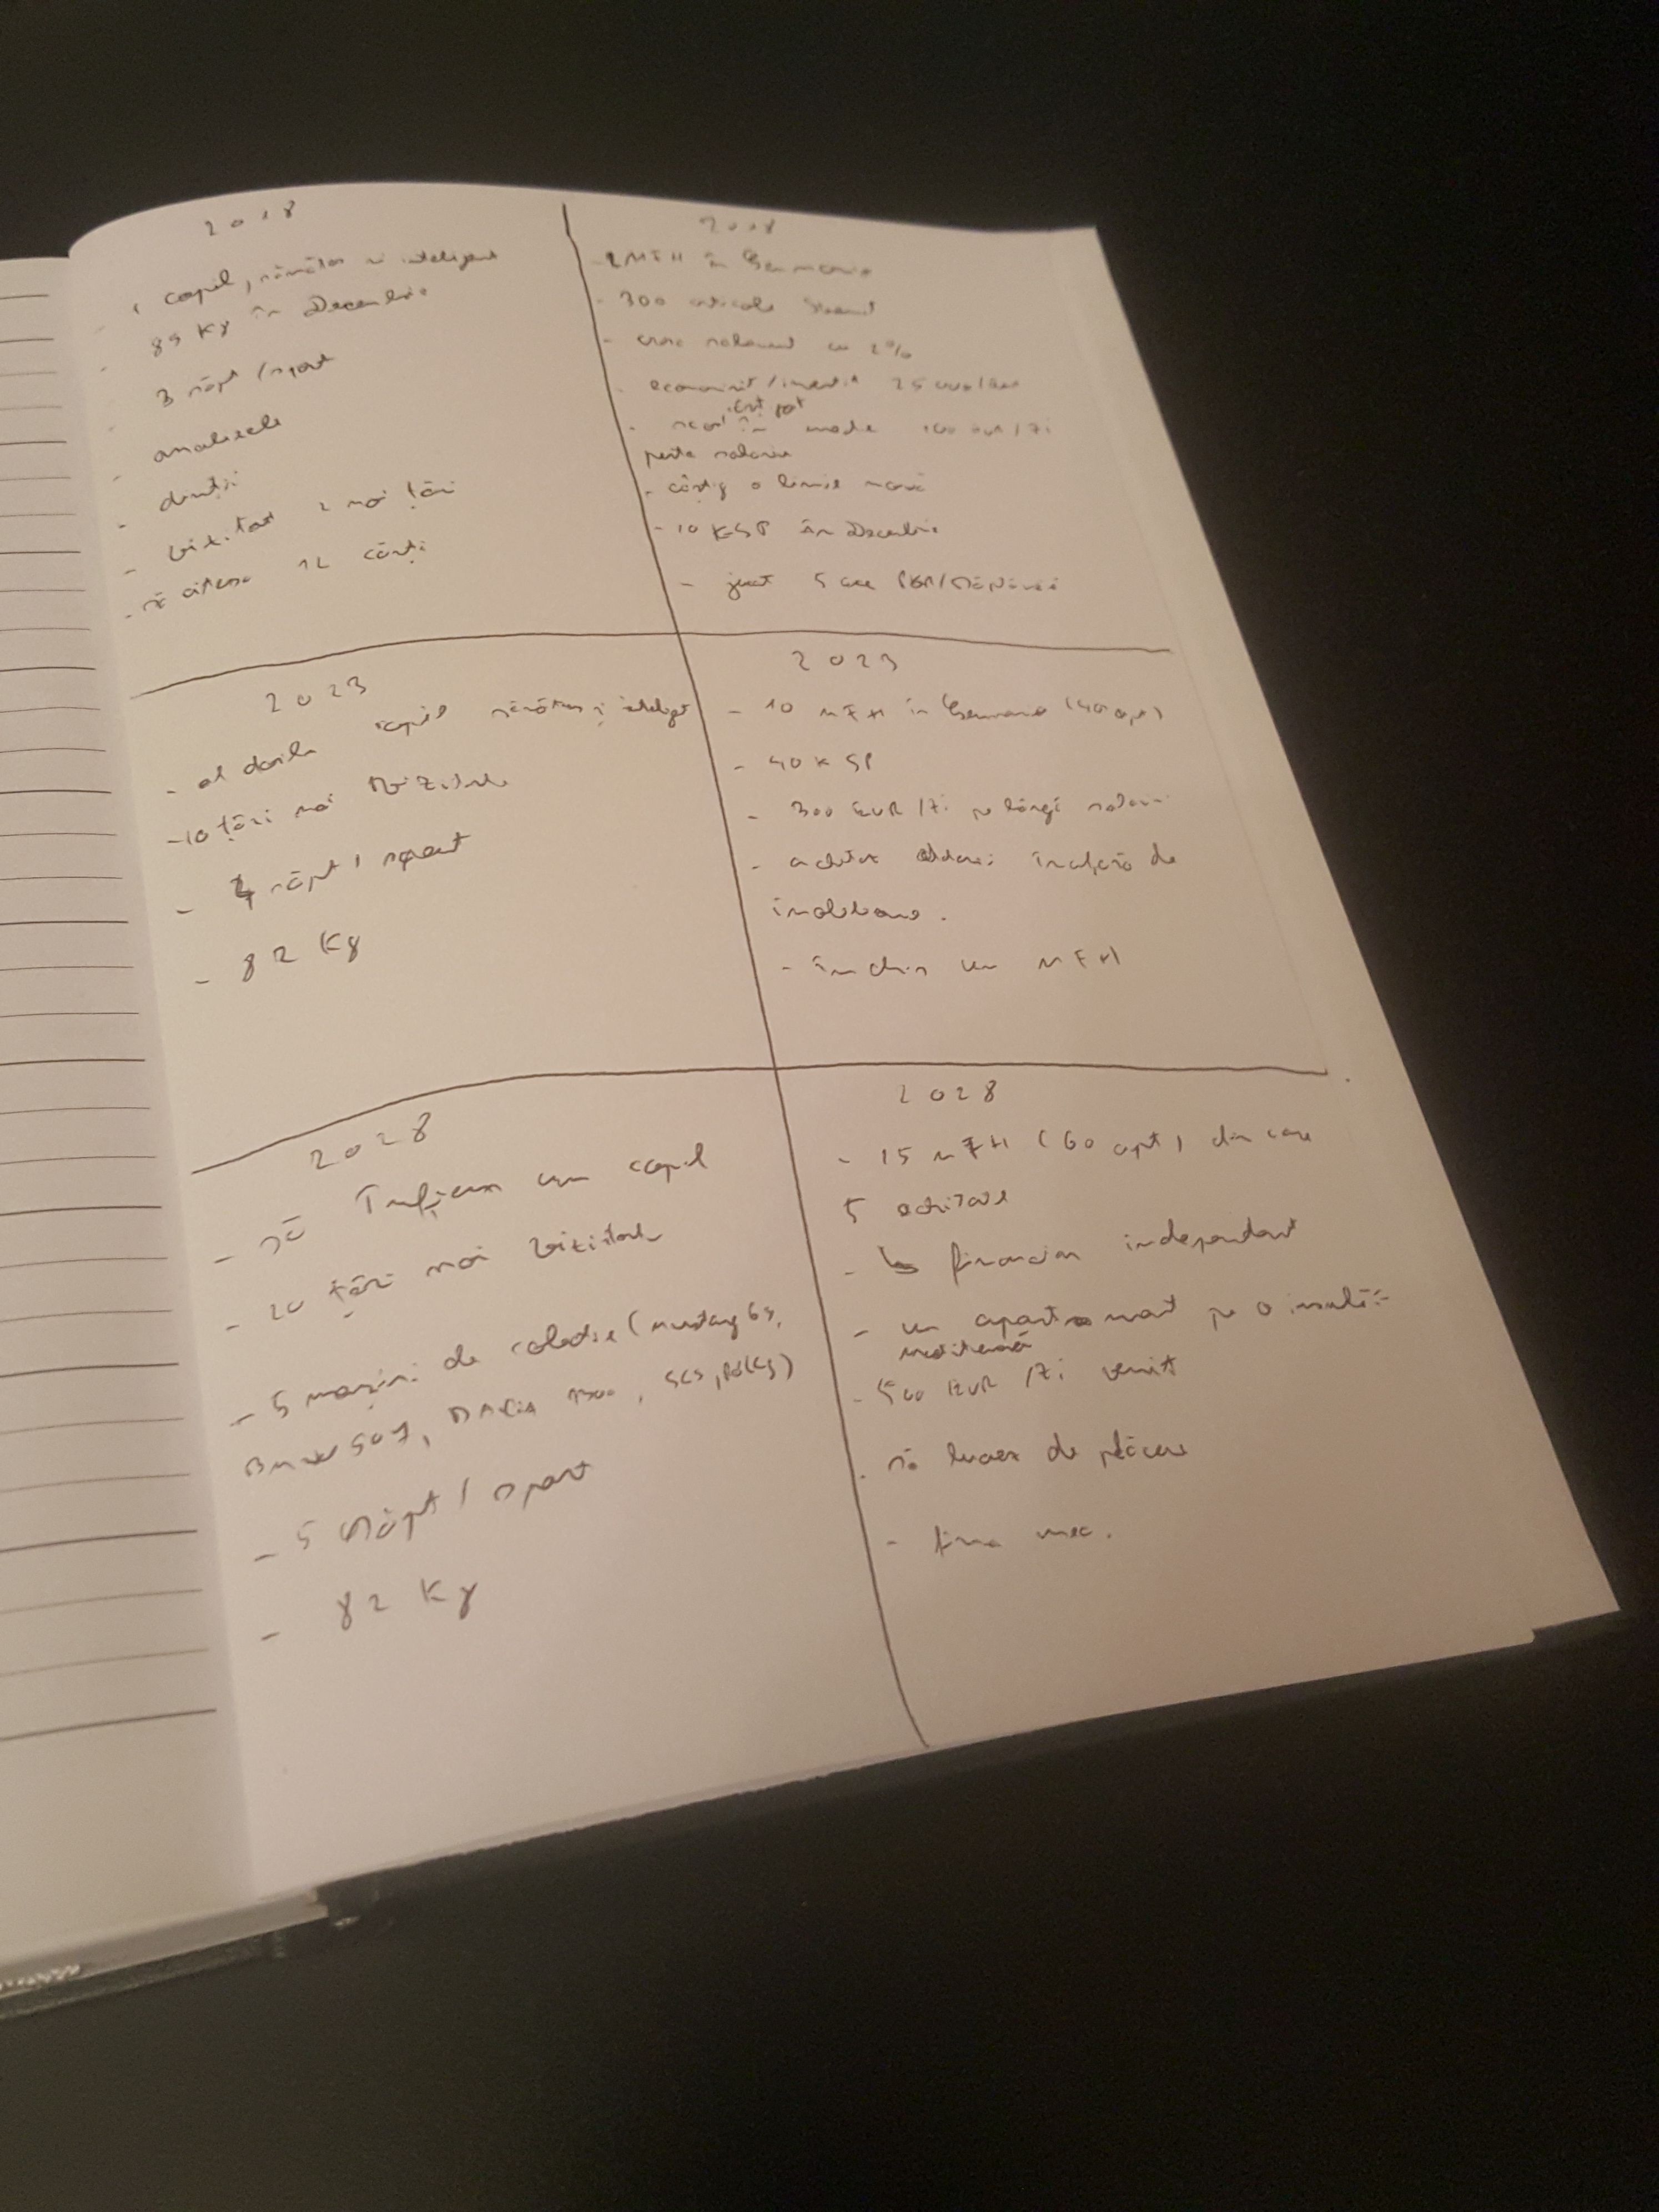 2018
- 1 copil, sănătos și inteligent
- 85 Kg în Decembrie
- 3 săpt / sport
- analizele
- dinții
- vizitat 2 noi țări
- să citesc 12 cărți
2018
- 2 MFH în Germania
- 300 articole Steemit
- cresc salariul cu 2%
- economisit / investit 25
- în medie 100 EUR / zi
peste salariu
- câștig o limbă nouă
- 10 K SP în Decembrie
- jucat 5 ore
2023
- al doilea copil sănătos și inteligent
- 10 țări noi vizitate
- 4 săpt / sport
- 82 Kg
2023
- 10 MFH în Germania (40 ap)
- 40 K SP
- 300 EUR / zi pe lângă salariu
- achitat înafară de
imobiliare.
- închis un MFH
2028
- să înfiem un copil
- 20 țări noi vizitate
- 5 mașini de colecție (Mustang 69,
BMW 507, DACIA 1300, )
- 5 săpt / sport
- 82 Kg
2028
- 15 MFH (60 apt) din care
5 achitate
- ↳ financiar independent
- un apartament pe o insulă
mediterană
- 500 EUR / zi venit
- să lucrez de plăcere
- firma mea.